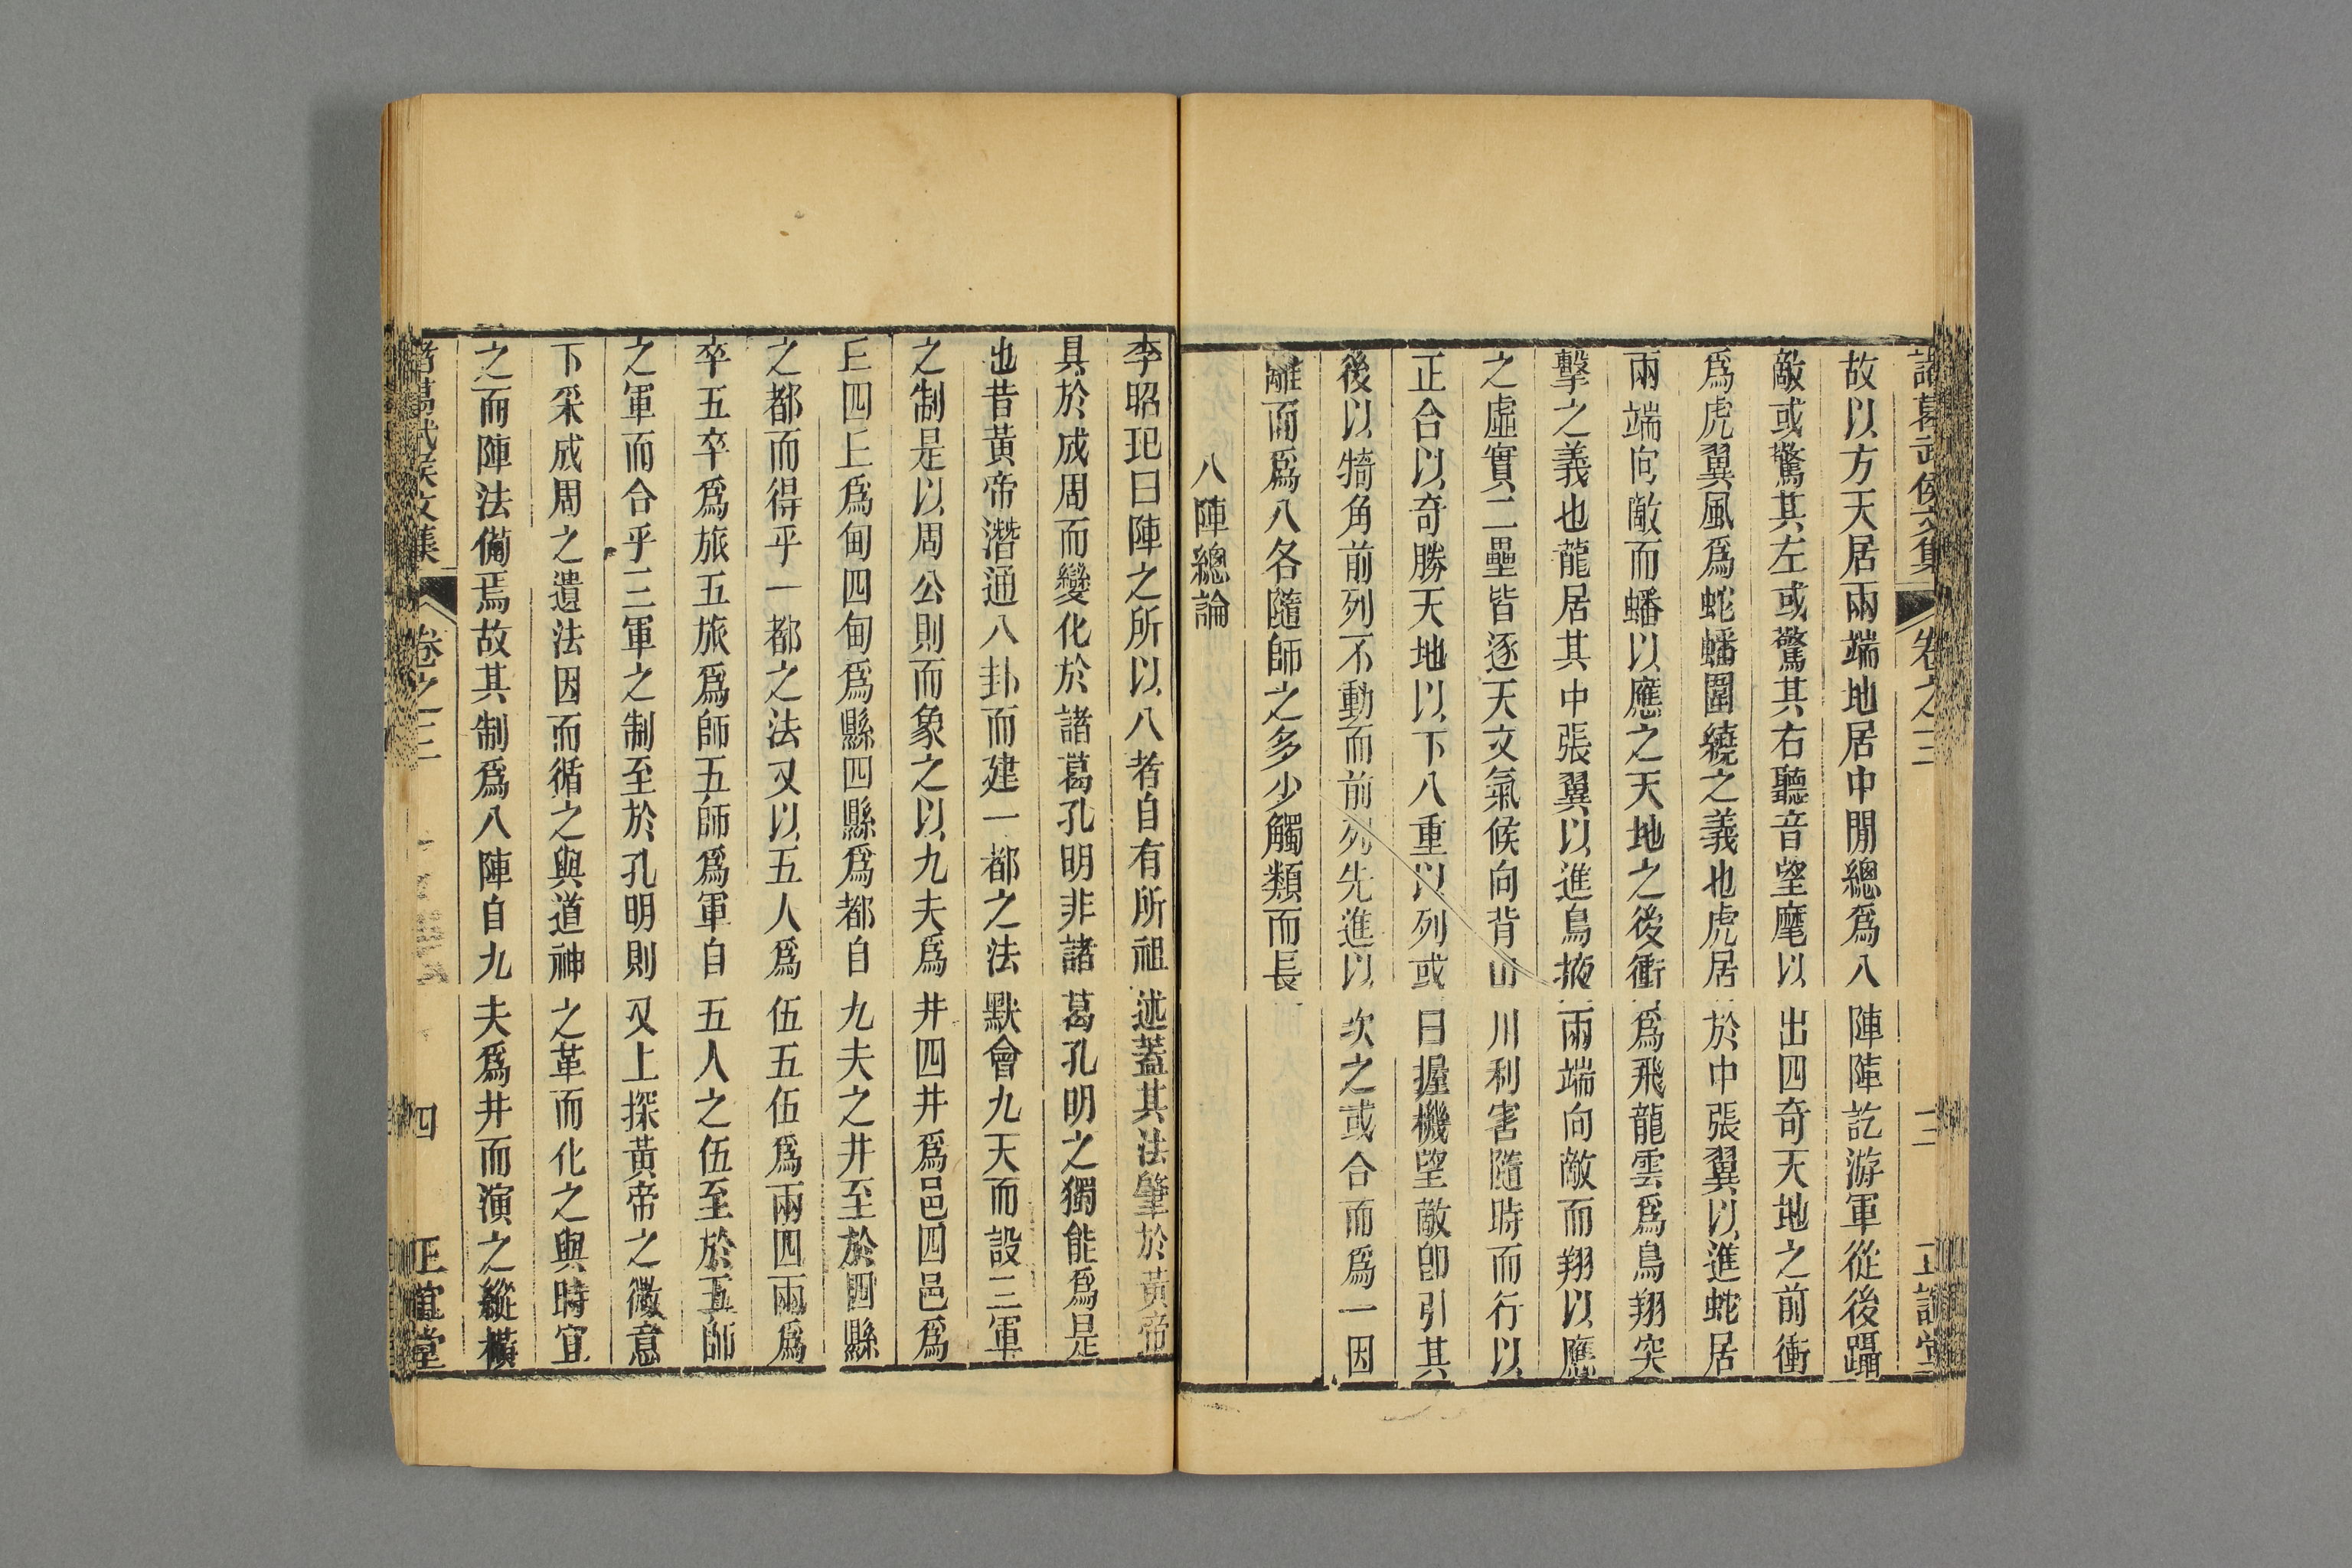 諸葛武侯文集 卷之三 三 正誼堂
故以方天居兩端地居中間總爲八陣陣訖游軍從後躡
敵或驚其左或驚其右聽音望麾以出四奇天地之前衝
爲虎翼風爲蛇蟠圍繞之義也虎居於中張翼以進蛇居
兩端向敵而蟠以應之天地之後衝爲飛龍雲爲鳥翔突
擊之義也龍居其中張翼以進鳥掖兩端向敵而翔以應
之虛實二壘皆逐天文氣候向背山川利害隨時而行以
正合以奇勝天地以下八重以列或曰握機望敵卽引其
後以犄角前列不動而前列先進以次之或合而爲一因
離而爲八各隨師之多少觸類而長
八陣總論
李昭玘曰陣之所以八者自有所祖述蓋其法肇於黃帝
具於成周而變化於諸葛孔明非諸葛孔明之獨能爲是
也昔黃帝潛通八卦而建一都之法默會九天而設三軍
之制是以周公則而象之以九夫爲井四井爲邑四邑爲
丘四丘爲甸四甸爲縣四縣爲都自九夫之井至於四縣
之都而得乎一都之法又以五人爲伍五伍爲兩四兩爲
卒五卒爲旅五旅爲師五師爲軍自五人之伍至於五師
之軍而合乎三軍之制至於孔明則又上探黃帝之微意
下采成周之遺法因而循之與道神之革而化之與時宜
之而陣法備焉故其制爲八陣自九夫爲井而演之縱橫
諸葛武侯文集 卷之三 四 正誼堂